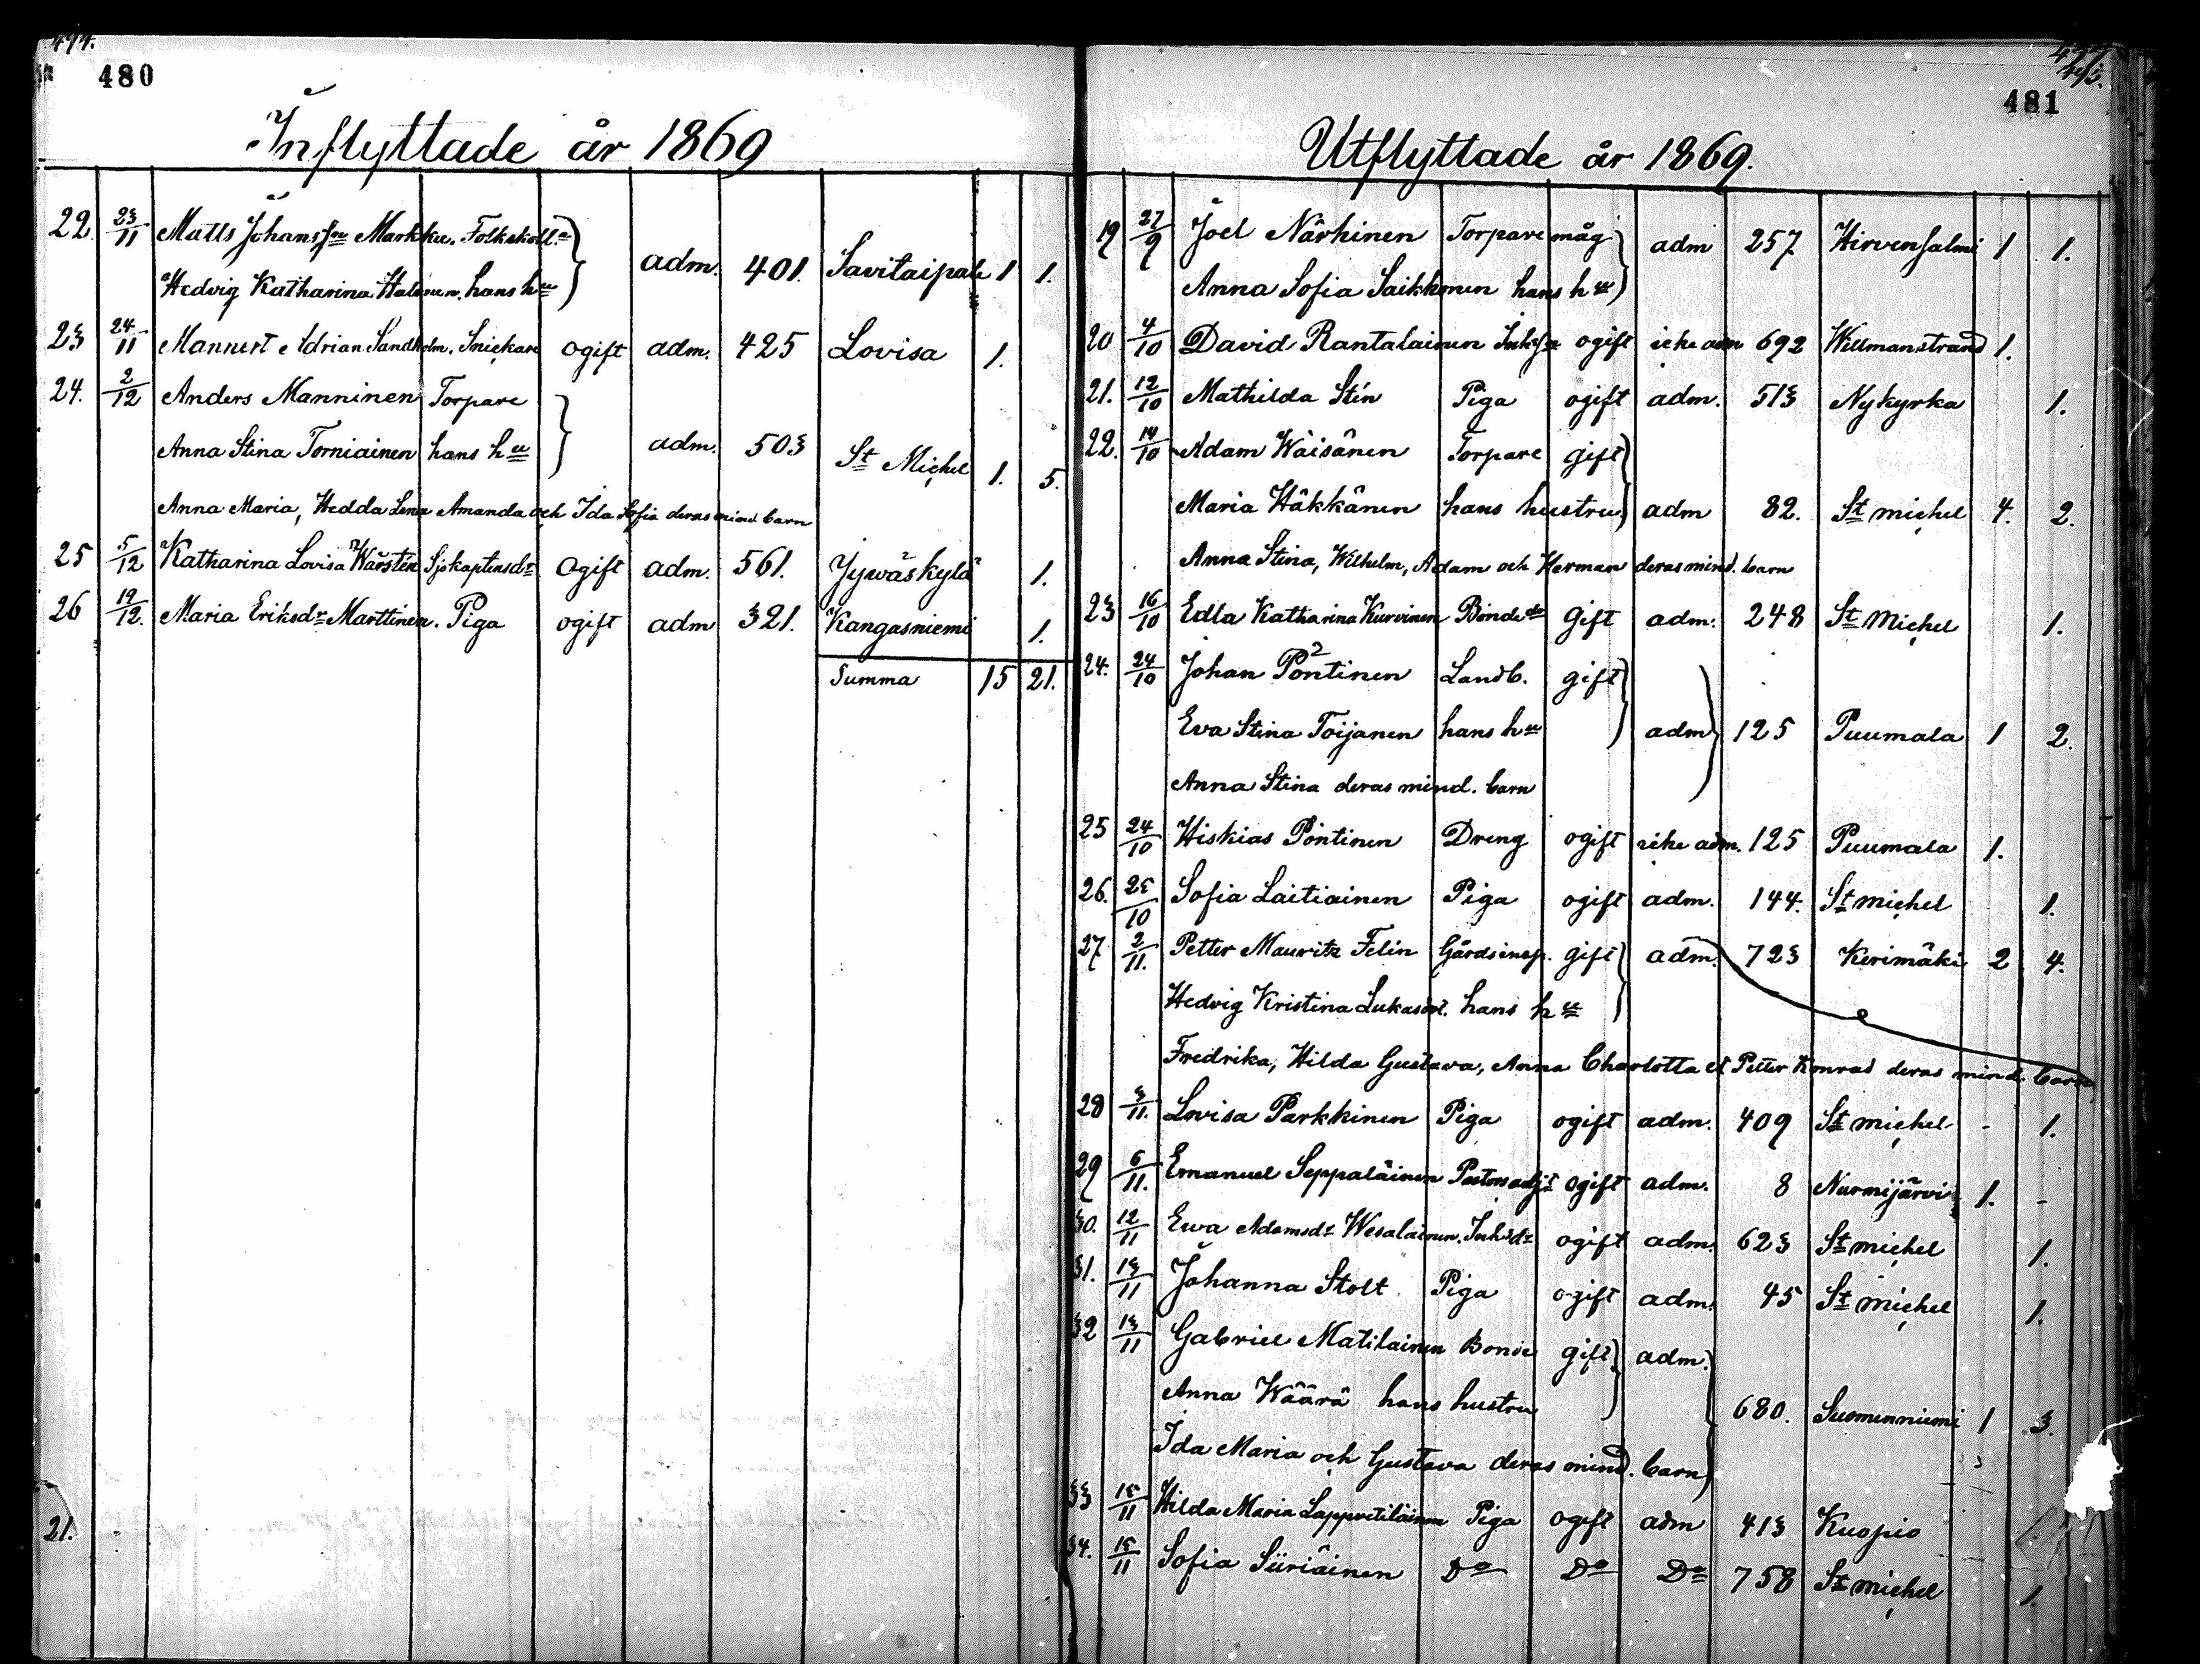 480
Inflyttade år 1869
22. 23/11 Matts Johansson Markku. Folkskoll.
Hedvig Katharina Halonen. hans hu adm. 401. Savitaipale 1 1.
23 24/11 Mannert Adrian Sandholm. Snickare ogift adm. 425 Lovisa 1.
24. 2/12 Anders Manninen Torpare
Anna Stina Torniainen hans hu adm. 503 St Michel 1. 5.
Anna Maria, Hedda Lena Amanda och Ida Sofia deras mind. barn
25 5/12 Katharina Lovisa Warstén Sjökaptensdr ogift adm. 561. Jywäskylä 1.
26 19/12. Maria Eriksdr Marttinen. Piga ogift adm 321. Kangasniemi 1.
Summa 15 21.
21.
481
Utflyttade år 1869.
19 27/9 Joel Närhinen Torpare måg adm 257 Hirvensalmi 1 1.
Anna Sofia Saikkonen hans hu
20 4/10 David Rantalainen Inhs ogift icke adm 692 Willmanstrand 1.
21. 12/10 Mathilda Stén Piga ogift adm. 513 Nykyrka 1.
22. 14/10 Adam Wäisänen Torpare gift
Maria Häkkänen hans hustru adm 82. St michel 4. 2.
Anna Stina, Wilhelm, Adam och Herman deras mind. barn
23 16/10 Edla Katharina Kurvinen Bondedr gift adm. 248 St Michel 1.
24. 24/10 Johan Pöntinen Landb. gift
Eva Stina Toijanen hans hu adm 125 Puumala 1 2.
Anna Stina deras mind. barn
25 24/10 Hiskias Pöntinen Dreng ogift icke adm. 125 Puumala 1.
26. 25/10 Sofia Laitiainen Piga ogift adm. 144. St michel 1.
27 2/11. Petter Mauritz Felin Gårdsinsp. gift adm. 723 Kerimäki 2 4.
Hedvig Kristina Lukasdr. hans hu
Fredrika, Hilda Gustava, Anna Charlotta et Petter Konrad deras mind. barn
28 3/11. Lovisa Parkkinen Piga ogift adm. 409 St michel - 1.
29 6/11. Emanuel Seppäläinen Pastorsadjt ogift adm. 8 Nurmijärvi 1. -
30. 12/11 Ewa Adamsdr Wesalainen. Inhsdr ogift adm. 623 St michel 1.
31. 13/11 Johanna Stolt Piga ogift adm. 45 St michel 1.
32 13/11 Gabriel Matilainen Bonde gift adm.
Anna Wäärä hans hustru 680. Suomenniemi 1 3.
Ida Maria och Gustava deras mind. barn
33 15/11 Hilda Maria Lappvetiläinen Piga ogift adm 413 Kuopio
34. 15/11 Sofia Siiriäinen Do Do Do 758 St michel 1.